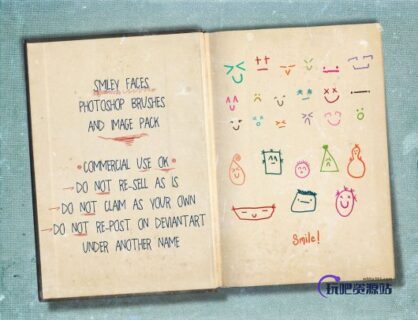 SMILEY FACES
PHOTOSHOP BRUSHES
AND IMAGE PACK
COMMERCIAL USE OK
DO NOT RE-SELL AS IS
DO NOT CLAIM AS YOUR OWN
DO NOT RE-POST ON DEVIANTART
UNDER ANOTHER NAME
Smile!
玩吧资源站